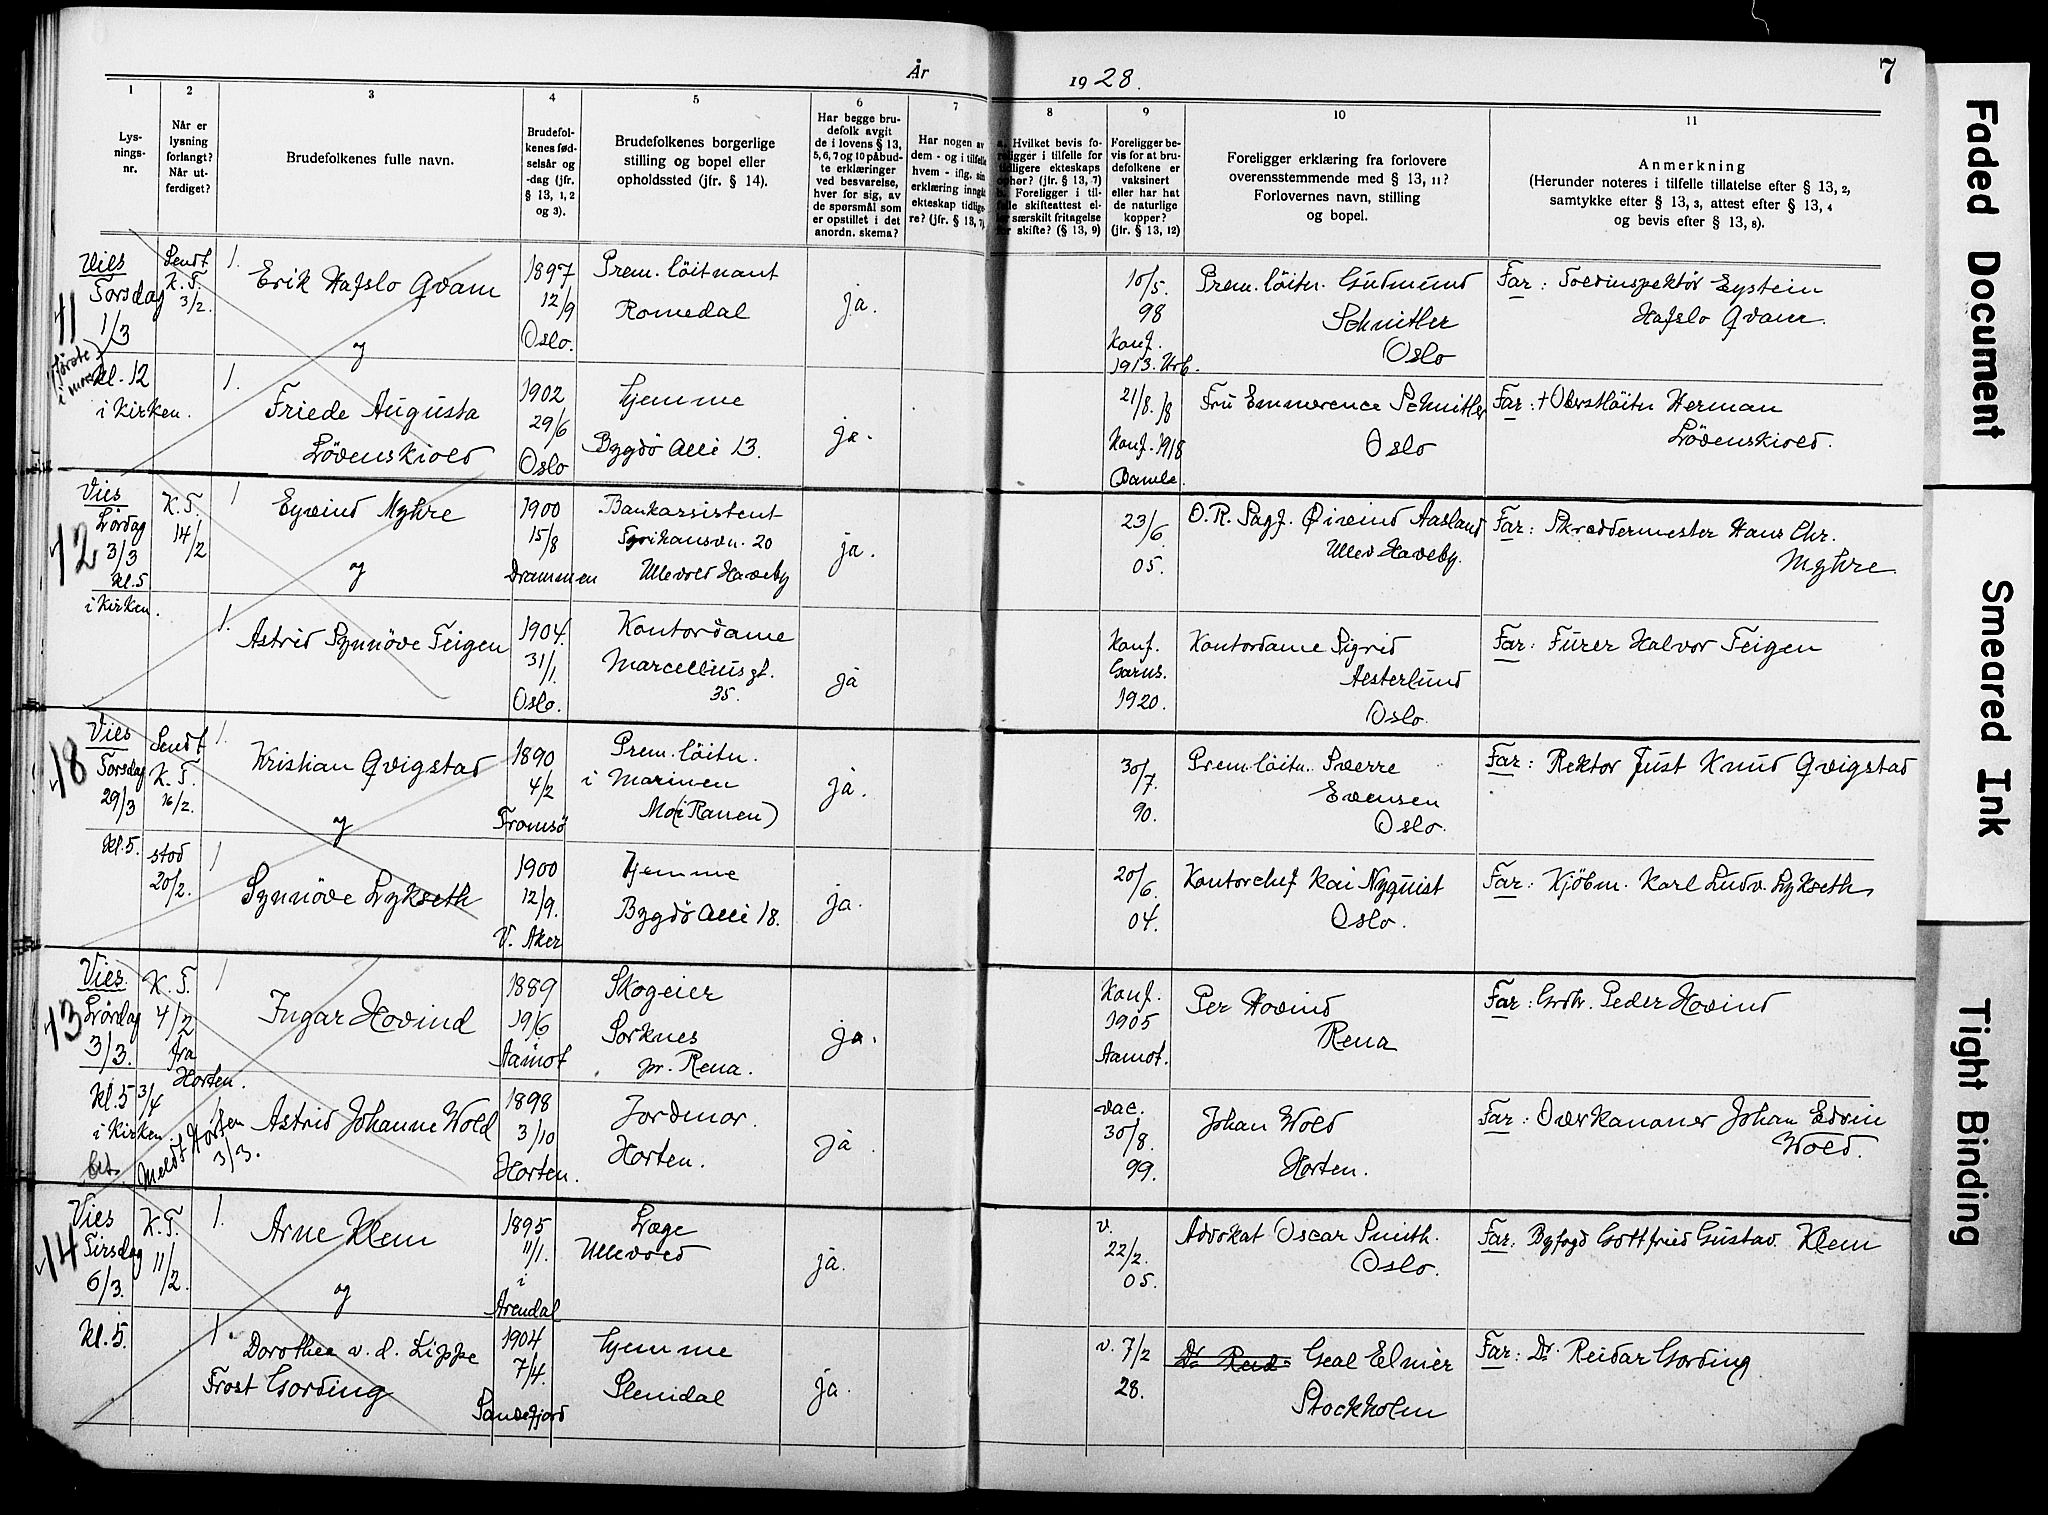 År 1928.
7
1
2
3
4
5
6
7
8
9
10
11
Lys-
nings-
nr.
Når er
lysning
forlangt?
Når ut-
ferdiget?
Brudefolkenes fulle navn.
Brudefol-
kenes fød-
selsår og
-dag (jfr.
§ 13, 1, 2
og 3).
Brudefolkenes borgerlige
stilling og bopel eller
opholdssted (jfr. § 14).
Har begge bru-
defolk avgit
de i lovens § 13,
5, 6, 7 og 10 påbud-
te erklæringer
ved besvarelse,
hver for sig, av
de spørsmål som
er opstillet i det
anordn. skema?
Har nogen av
dem - og i tilfelle
hvem - iflg. sin
erklæring inngåt
ekteskap tidlige-
re? (jfr. § 13, 7)
a. Hvilket bevis fo-
religger i tilfelle for
tidligere ekteskaps
ophør? (jfr. § 13, 7)
b. Foreligger i til-
felle skifteattest el-
ler særskilt fritagelse
for skifte? (§ 13, 9)
Foreligger be-
vis for at bru-
defolkene er
vaksinert
eller har hat
de naturlige
kopper?
(jfr. § 13, 12)
Foreligger erklæring fra forlovere
overensstemmende med § 13, 11?
Forlovernes navn, stilling
og bopel.
Anmerkning
(Herunder noteres i tilfelle tillatelse efter § 13, 2,
samtykke efter § 13, 3, attest efter § 13, 4
og bevis efter § 13, 8).
11
Vies
Torsdag
1/3
(første
kl. 12
i Kirken.
Sendt
K. T.
3/2.
1.
Erik Hafslo Qvam
1897
12/9
Oslo.
Prem. löitnant
Romedal
ja.
10/5.
98
Konf.
1913. Urb.
Prem. löitn. Gudmund
Schnitler
Oslo
Far: Toldinspektør Eystein
Hafslo Qvam.
og
1.
Friede Augusta
Lövenskiold
1902
29/6
Oslo
hjemme
Bygdö Allé 13.
ja.
21/8.
Konf. 1918
Bamle.
Fru Emmerence Schnitler
Oslo
Far: † Oberstlöitn Herman
Lövenskiold.
12
Vies
Lördag
3/3
kl. 5
i Kirken.
K. T.
14/2
1
Eyvind Myhre
1900
15/8
Drammen
Bankassistent
20
Ullevold Haveby
ja.
23/6.
05.
O. R. Sagf. Øivind Aasland
Ullev Haveby.
Far: Skreddermester Hans Chr.
Myhre.
og
1.
Astrid Synnöve Teigen
1904.
31/1.
Oslo.
Kontordame
Marcellius gt.
35.
ja
Konf.
1920.
Kontordame Sigrid
Oslo.
Far: Furer Halvor Teigen
18
Vies
Torsdag
29/3
kl. 5.
Sendt
K. T.
16/2.
1.
Kristian Qvigstad
1890
4/2
Tromsö
Prem. löitn.
i Marinen
Mo (i Ranen)
ja.
30/7.
90.
Prem. löitn. Sverre
Evensen
Oslo.
Far: Rektor Just Knud Qvigstad
og
stod
20/2.
1
Synnöve Lykseth
1900
12/9.
V. Aker
hjemme
Bygdö Allé 18.
ja.
20/6.
04.
Kontorchef Kai Nyquist
Oslo.
Far: Kjöbm. Karl Ludv. Lykseth
13
Vies
Lördag
3/3.
kl. 5
i Kirken.
K. T.
4/2
fra
Horten.
3/4
Meldt Horten
3/3.
1
Ingar Hovind
1889
19/6
Aamot
Skogeier
Sorknes
pr. Rena.
ja.
Konf.
1905
Aamot.
Per Hovind
Rena
Far: Grdbr. Peder Hovind
1
Astrid Johanne Wold
1898
3/10
Horten.
Jordmor.
Horten.
ja.
vac.
30/8.
99.
Johan Wold
Horten.
Far: Overkanoner Johan Edvin
Wold.
14
Vies
Tirsdag
6/3.
kl. 5.
K. T.
11/2.
1.
Arne Klem
1895
11/1.
i
Arendal
Læge
Ullevold
ja.
v.
22/2.
05.
Advokat Oscar Smith.
Oslo.
Far: Byfogd Gottfried Gustav Klem
og
1.
Dorothea v. d. Lippe
Frost Gording
1904
7/4.
Sandefjord
hjemme
Slemdal
ja.
v. 7/2
28.
Dr. Reid.
Stockholm
Far: Dr. Reidar Gording
Faded Document
Smeared Ink
Tight Binding